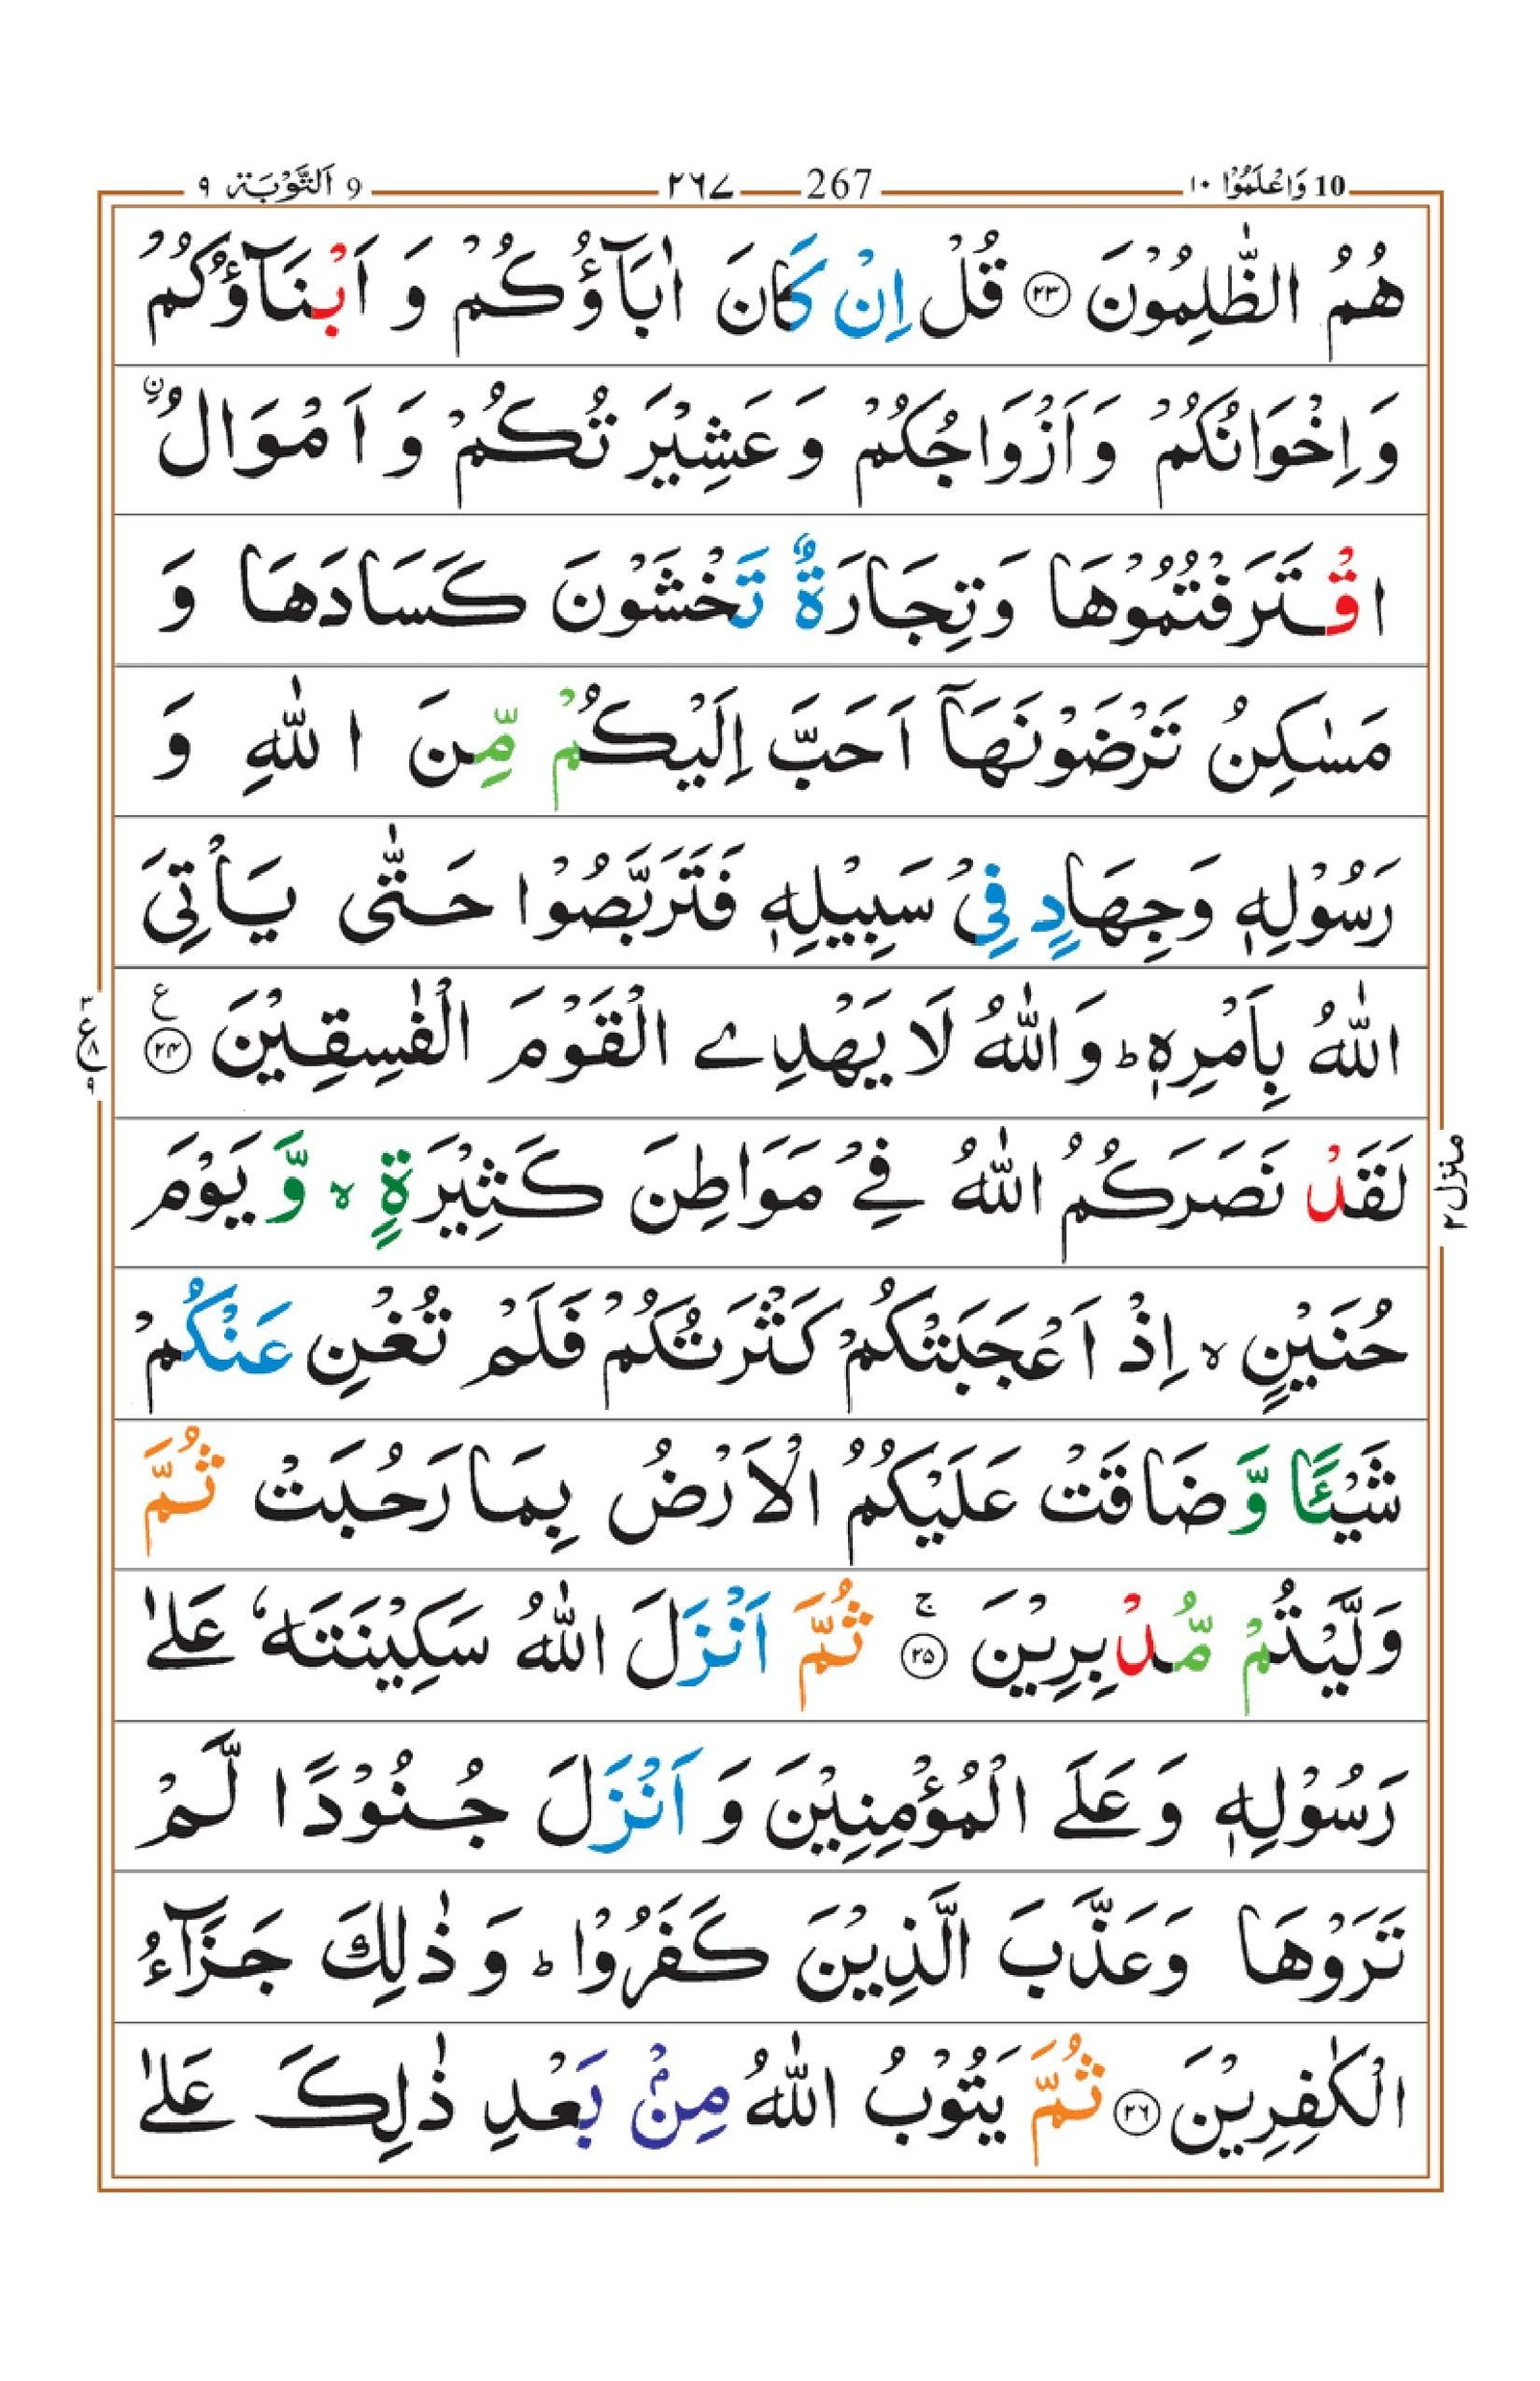 10 وَاعْلَمُوْۤا ١٠ 267 ٢٦٧ 9 اَلتَّوْبَة ٩
هُمُ الظّٰلِمُوْنَ ﴿٢٣﴾ قُلْ اِنْ كَانَ اٰبَآؤُكُمْ وَ اَبْنَآؤُكُمْ
وَاِخْوَانُكُمْ وَاَزْوَاجُكُمْ وَعَشِيْرَتُكُمْ وَ اَمْوَالُ ۨ
اقْتَرَفْتُمُوْهَا وَتِجَارَةٌ تَخْشَوْنَ كَسَادَهَا وَ
مَسٰكِنُ تَرْضَوْنَهَاۤ اَحَبَّ اِلَيْكُمْ مِّنَ اللّٰهِ وَ
رَسُوْلِهٖ وَجِهَادٍ فِيْ سَبِيْلِهٖ فَتَرَبَّصُوْا حَتّٰى يَاْتِيَ
اللّٰهُ بِاَمْرِهٖ ؕ وَاللّٰهُ لَا يَهْدِے الْقَوْمَ الْفٰسِقِيْنَ ﴿٢٤﴾ ع
٣ ع ٨ ٩
لَقَدْ نَصَرَكُمُ اللّٰهُ فِيْ مَوَاطِنَ كَثِيْرَةٍ ۙ وَّ يَوْمَ
منزل ٢
حُنَيْنٍ ۙ اِذْ اَعْجَبَتْكُمْ كَثْرَتُكُمْ فَلَمْ تُغْنِ عَنْكُمْ
شَيْـًٔا وَّضَاقَتْ عَلَيْكُمُ الْاَرْضُ بِمَا رَحُبَتْ ثُمَّ
وَلَّيْتُمْ مُّدْبِرِيْنَ ۚ﴿٢٥﴾ ثُمَّ اَنْزَلَ اللّٰهُ سَكِيْنَتَهٗ عَلٰى
رَسُوْلِهٖ وَعَلَى الْمُؤْمِنِيْنَ وَ اَنْزَلَ جُنُوْدًا لَّمْ
تَرَوْهَا وَعَذَّبَ الَّذِيْنَ كَفَرُوْا ؕ وَ ذٰلِكَ جَزَآءُ
الْكٰفِرِيْنَ ﴿٢٦﴾ ثُمَّ يَتُوْبُ اللّٰهُ مِنْۢ بَعْدِ ذٰلِكَ عَلٰى